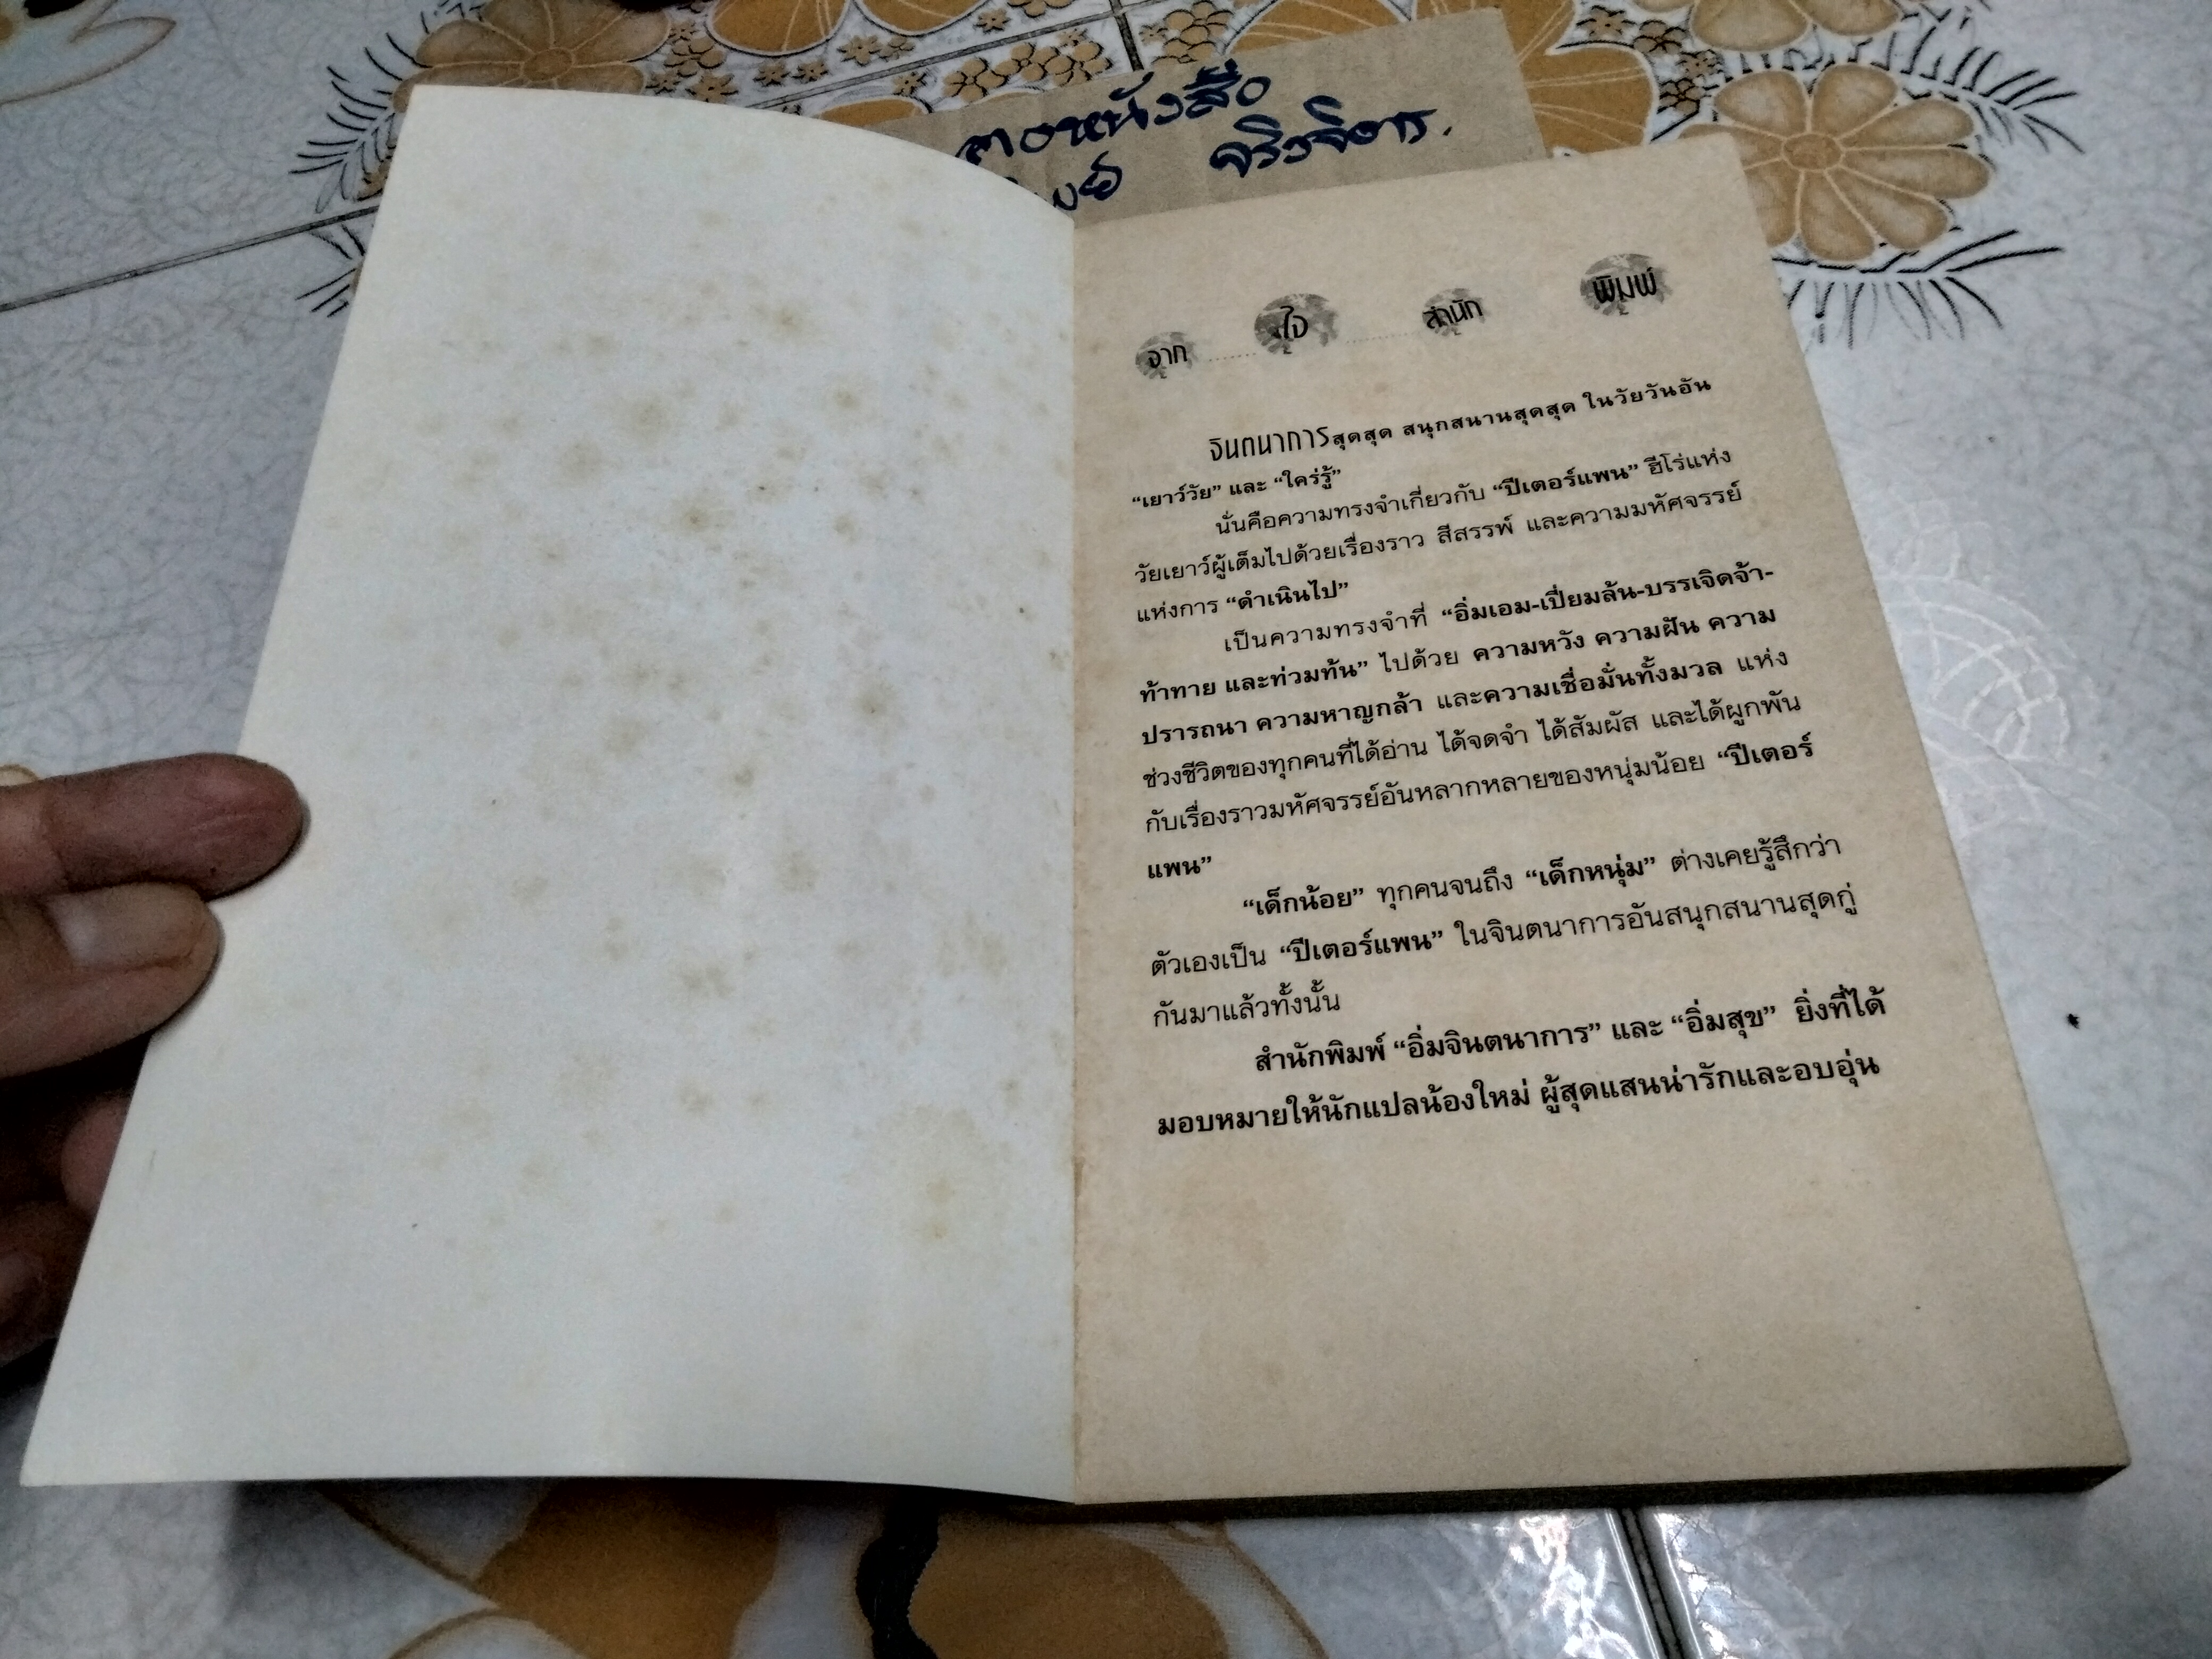 ตอหนังสือ
จริงจิตร.
จาก ใจ สำนัก พิมพ์
จินตนาการสุดสุด สนุกสนานสุดสุด ในวัยวันอัน
“เยาว์วัย” และ “ใคร่รู้”
นั่นคือความทรงจำเกี่ยวกับ “ปีเตอร์แพน” ฮีโร่แห่ง
วัยเยาว์ผู้เต็มไปด้วยเรื่องราว สีสรรพ์ และความมหัศจรรย์
แห่งการ “ดำเนินไป”
เป็นความทรงจำที่ “อิ่มเอม-เปี่ยมล้น-บรรเจิดจ้า-
ท้าทาย และท่วมท้น” ไปด้วย ความหวัง ความฝัน ความ
ปรารถนา ความหาญกล้า และความเชื่อมั่นทั้งมวล แห่ง
ช่วงชีวิตของทุกคนที่ได้อ่าน ได้จดจำ ได้สัมผัส และได้ผูกพัน
กับเรื่องราวมหัศจรรย์อันหลากหลายของหนุ่มน้อย “ปีเตอร์
แพน”
“เด็กน้อย” ทุกคนจนถึง “เด็กหนุ่ม” ต่างเคยรู้สึกว่า
ตัวเองเป็น “ปีเตอร์แพน” ในจินตนาการอันสนุกสนานสุดกู่
กันมาแล้วทั้งนั้น
สำนักพิมพ์ “อิ่มจินตนาการ” และ “อิ่มสุข” ยิ่งที่ได้
มอบหมายให้นักแปลน้องใหม่ ผู้สุดแสนน่ารักและอบอุ่น